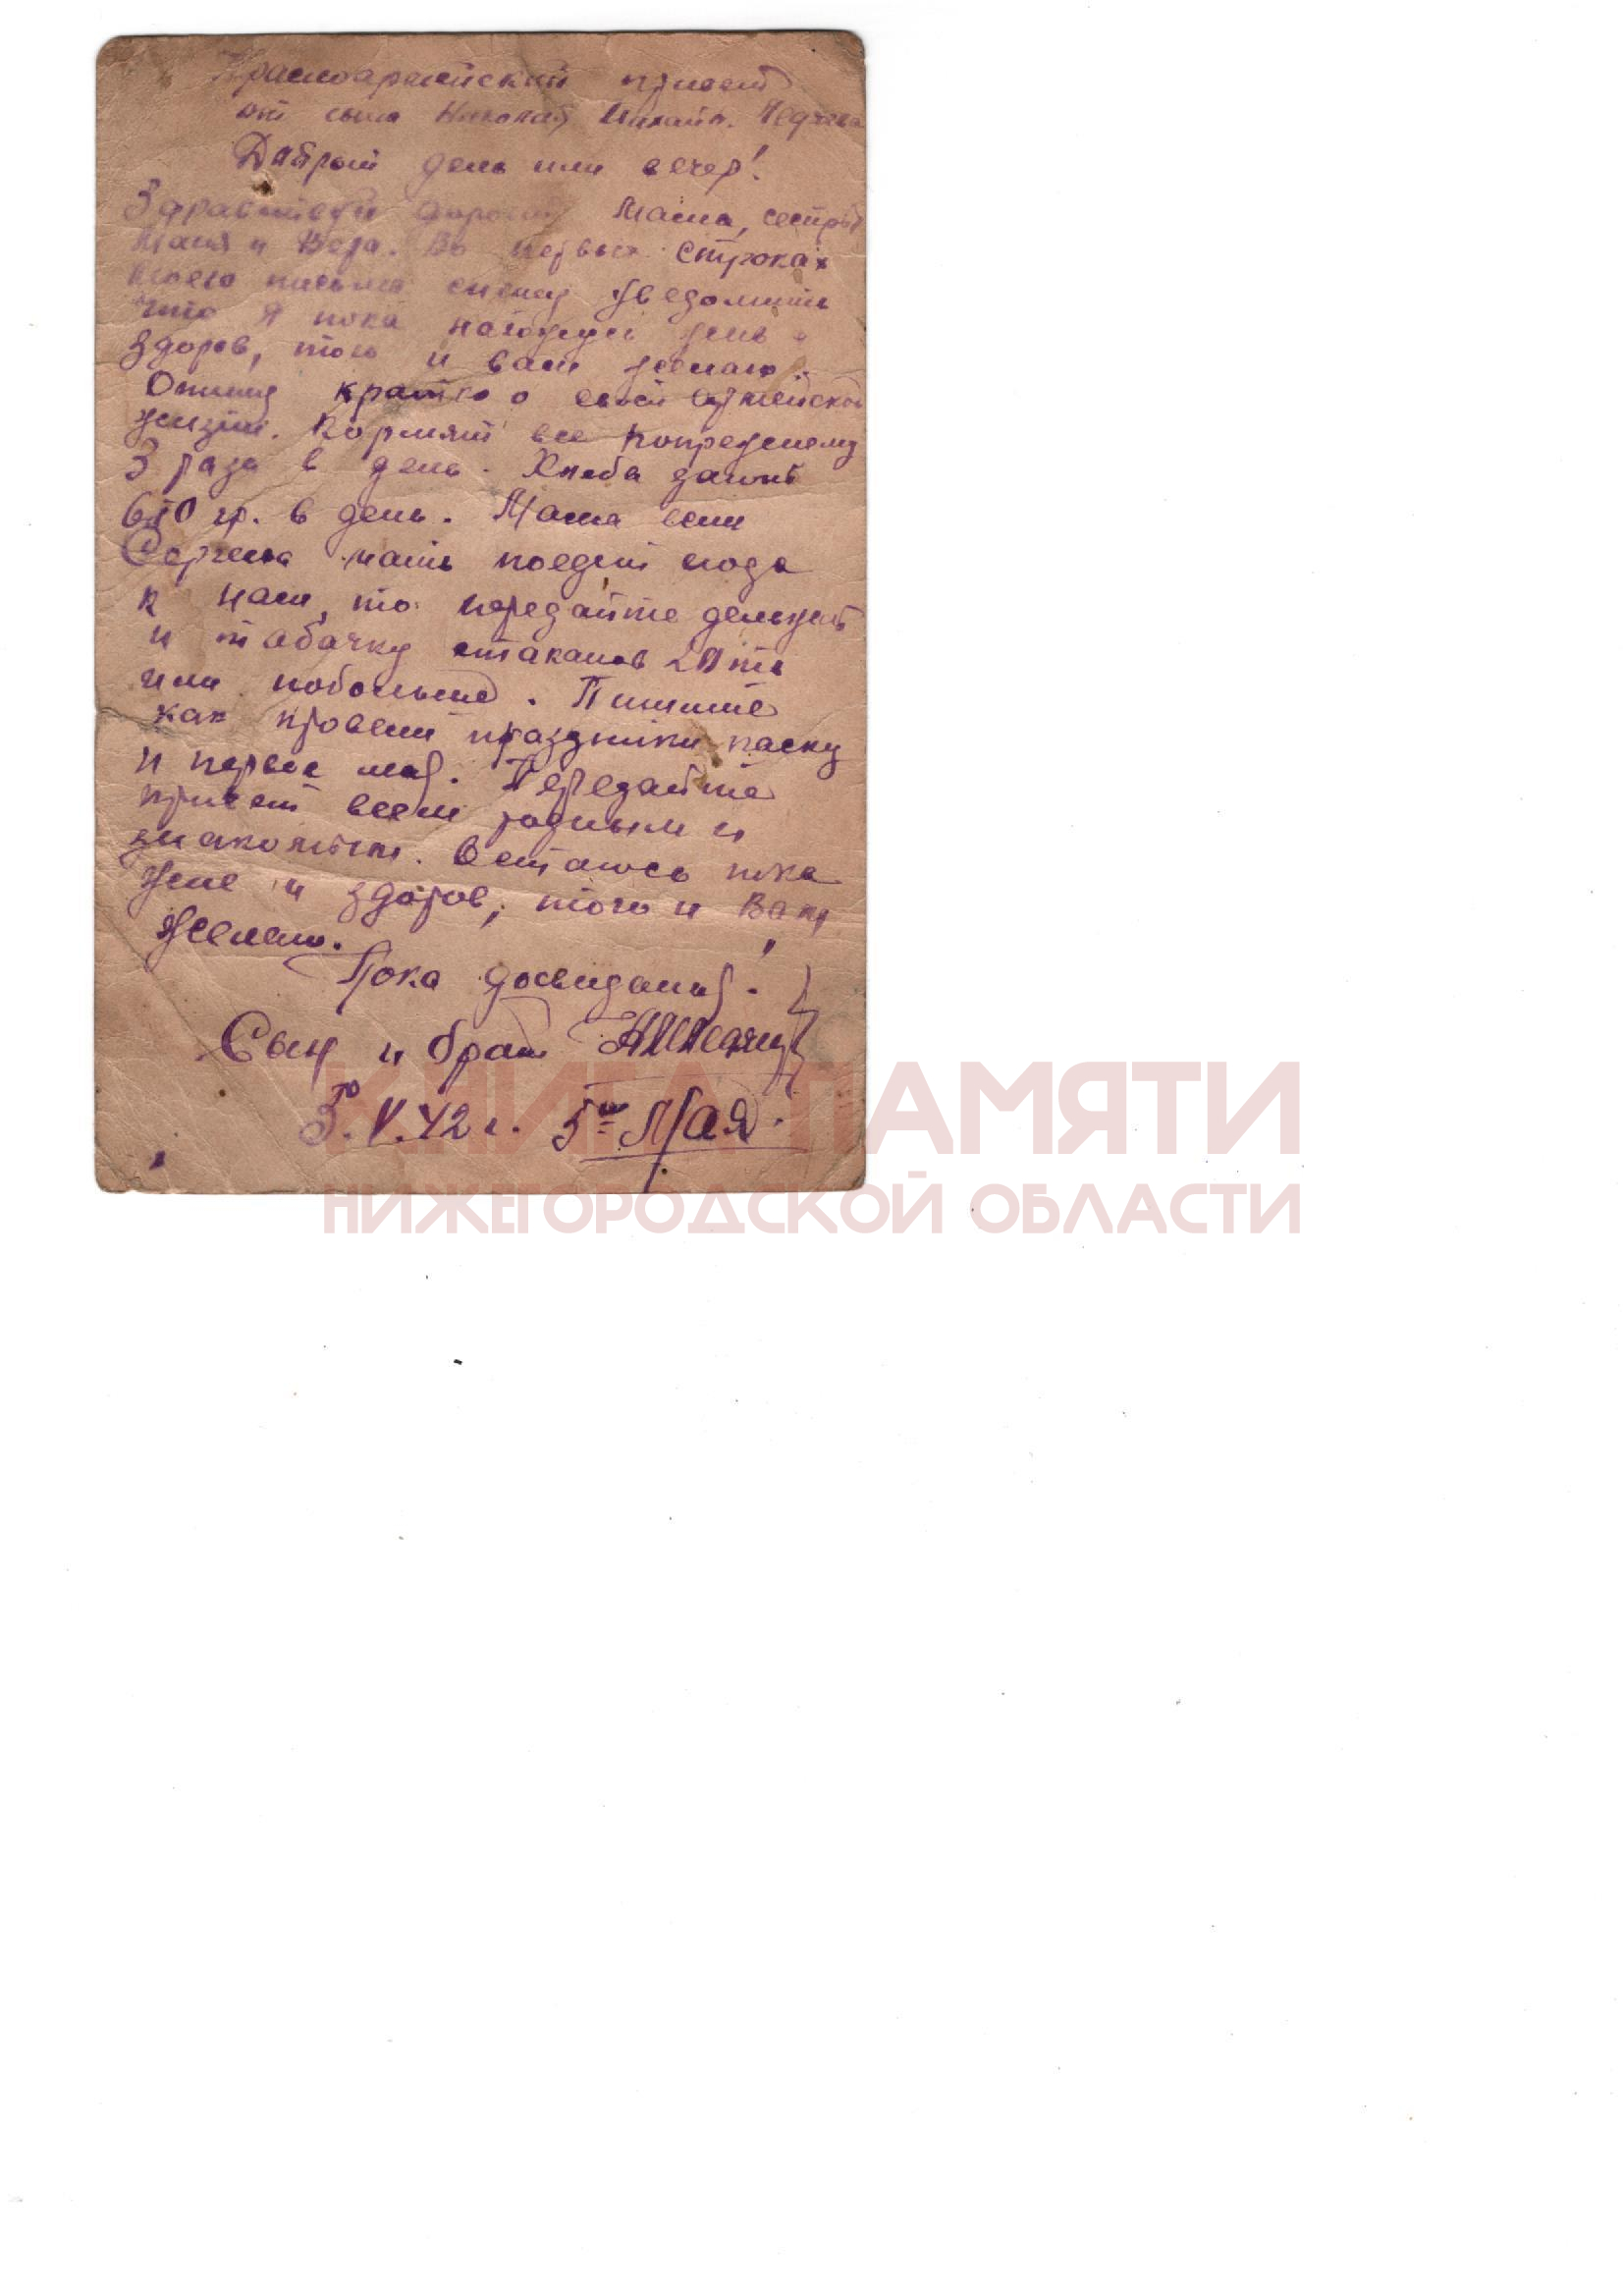 Красноармейский привет
от сына Николая Михайл.
Добрый день или вечер!
Здравствуй дорогая Мама, сестры
Маня и Вера. Во первых строках
моего письма спешу уведомить
что я пока нахожусь жив и
здоров, того и вам желаю.
Опишу кратко о своей армейской
жизни. Кормят все попрежнему
3 раза в день. Хлеба дают
650 гр. в день. Мама если
Сергеева мать поедит сюда
к нам, то передайте деньжат
и табачку стаканов
или побольше. Пишите
как провели праздники паску
и первое мая. Передайте
привет всем родным и
знакомым. Востаюсь пока
жив и здоров, того и Вам
желаю.
Пока досвидания!
Сын и брат
5го.V.42 г. 5го Мая.
КНИГА ПАМЯТИ
НИЖЕГОРОДСКОЙ ОБЛАСТИ